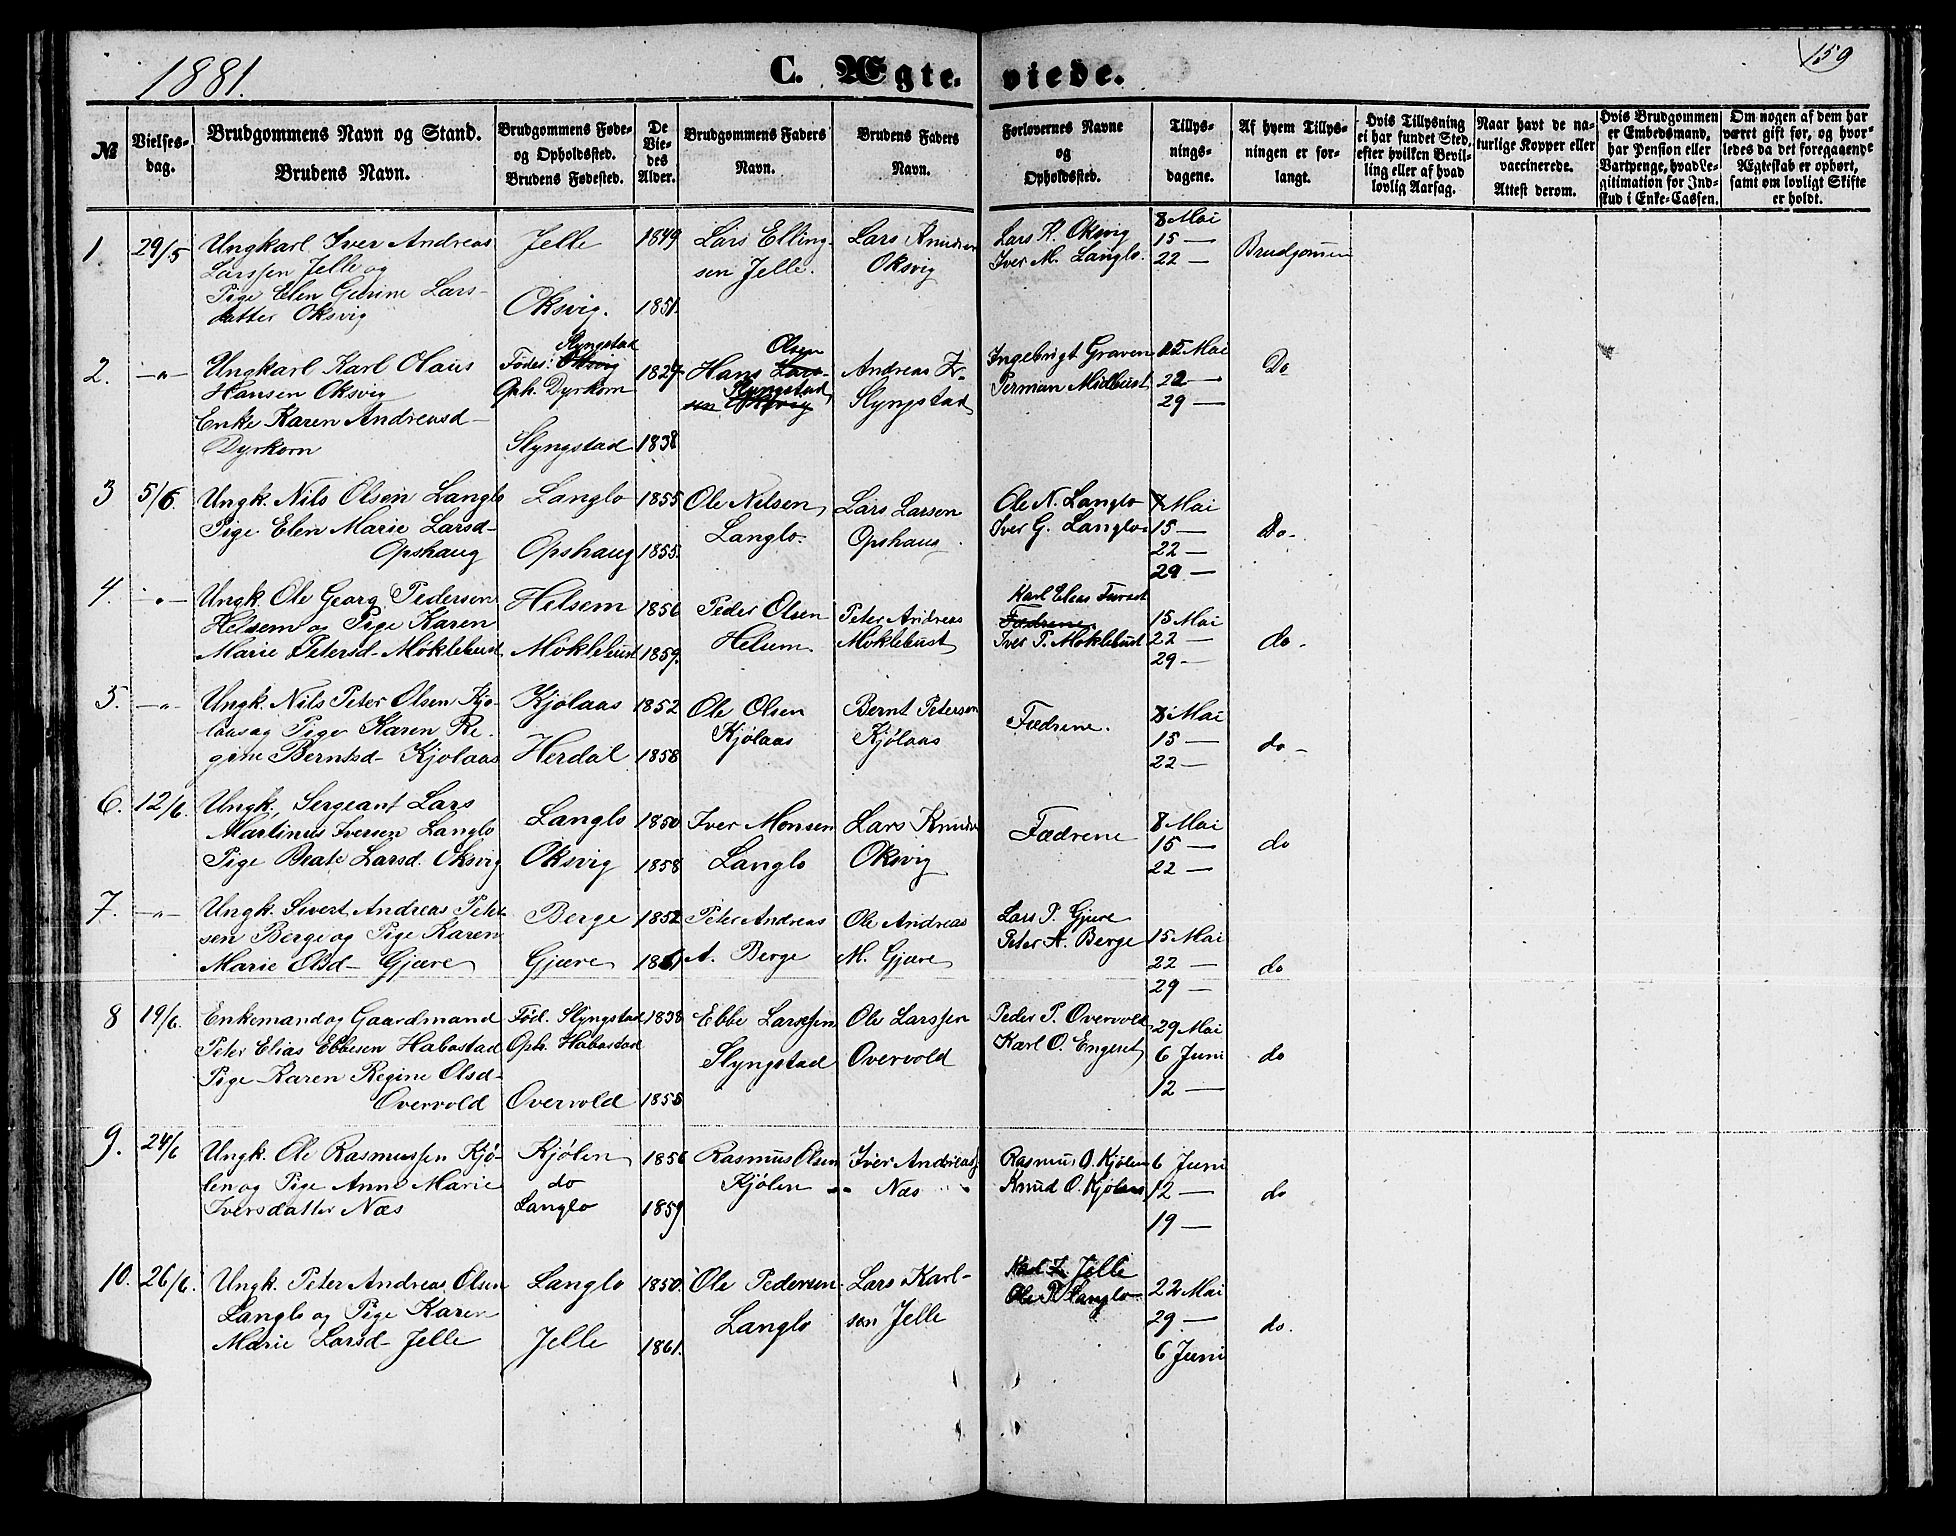 1881.
C. Ægteviede.
159
№
Vielsesdag.
Brudgommens Navn og Stand.
Brudens Navn.
Brudgommens Føde- og Opholdssted.
Brudens Fødested.
De Viedes Alder.
Brudgommens Faders Navn.
Brudens Faders Navn.
Forlovernes Navne og Opholdssted.
Tillysningsdagene.
Af hvem Tillysningen er forlangt.
Hvis Tillysning ei har fundet Sted, efter hvilken Bevilling eller af hvad lovlig Aarsag.
Naar havt de naturlige Kopper eller vaccinerede.
Attest derom.
Hvis Brudgommen er Embedsmand, har Pension eller Vartpenge, hvad Legitimation for Indskud i Enke-Cassen.
Om nogen af dem har været gift før, og hvorledes da det foregaaende Ægteskab er ophørt, samt om lovligt Skifte er holdt.
1. 29/5 Ungkarl Iver Andreas
Larssen Jelle og
Pige Elen Gurine Lars-
datter Oksvig
Jelle
Oksvig.
1849
1851.
Lars Elling-
sen Jelle.
Lars Knudsen
Oksvig
Lars K. Oksvig
Iver M. Langlo.
8 Mai
15 —
22 —
Brudgommen
2. —"— Ungkarl Karl Olaus
Hansen Oksvig
Enke Karen Andreasd-
Dyrkorn
Slyngstad
Født: Oksvig
Oph. Dyrkorn
Slyngstad
1827
1838
Olsen
Hans Lars-
Slyngstad
sen Oksvig
Andreas
Slyngstad
Ingebrigt Graven
Perman Midbust
15 Mai
22 —
29 —
Do
3 5/6. Ungk. Nils Olsen Langlo
Pige Elen Marie Larsd-
Opshaug
Langlo
Opshaug
1855
1855.
Ole Nilsen
Langlo.
Lars Larsen
Opshaug
Ole N. Langlo
Iver G. Langlo
7 Mai
15 —
22 —
29 —
Do-
4. —"— Ungk. Ole Georg Pedersen
Helsem og Pige Karen
Marie Petersd- Moklebust
Helsem
Moklebust
1856
1859.
Peder Olsen
Helsem
Peter Andreas
Moklebust
Karl Elias
Fædrene.
Iver P. Moklebust
15 Mai
22 —
29 —
do-
5. —"— Ungk. Nils Peter Olsen Kjo-
laas og Pige Karen Re-
gine Berntsd- Kjolaas
Kjolaas
Herdal
1852
1858
Ole Olsen
Kjølaas
Bernt Petersen
Kjølaas
Fædrene.
8 Mai
15 —
22 —
do-
6. 12/6. Ungk, Sergeant Lars
Martinus Iversen Langlo
Pige Beate Larsd. Oksvig
Langlo
Oksvig
1850
1858
Iver Monsen
Langlo
Lars Knuds
Oksvig
Fædrene
8 Mai
15 —
22 —
do
7. —"— Ungk. Sivert Andreas Peter
sen Berge og Pige Karen
Marie Olsd- Gjære
Berge
Gjære
1852
1861
Peter Andreas
A. Berge
Ole Andreas
M. Gjære
Lars P. Gjære
Peter A. Berge
15 Mai
22 —
29 —
do
8 19/6. Enkemand og Gaardmand
Peter Elias Ebbesen Habostad
Pige Karen Regine Olsd-
Overvold
Fød. Slyngstad
Oph. Habostad
Overvold
1838
1855
Ebbe Larssen
Slyngstad
Ole Larssen
Overvold
Peder P. Overvold
Karl O. Engeset
29 Mai
6 Juni
12 —
do
9. 24/6 Ungk. Ole Rasmussen Kjø-
len og Pige Anne Marie
Iversdatter Næs
Kjølen
do
Langlo
1856
1859
Rasmus Olsen
Kjølen
Iver Andreas
Næs
Rasmus O. Kjølen
Knud O. Kjølaas
6 Juni
12 —
19 —
do
10. 26/6. Ungk. Peter Andreas Olsen
Langlo og Pige Karen
Marie Larsd- Jelle
Langlo
Jelle
1850.
1861.
Ole Pedersen
Langlo
Lars Karl-
sen Jelle
Karl L. Jelle
Ole P. Langlo
22 Mai
29 —
6 Juni
do.